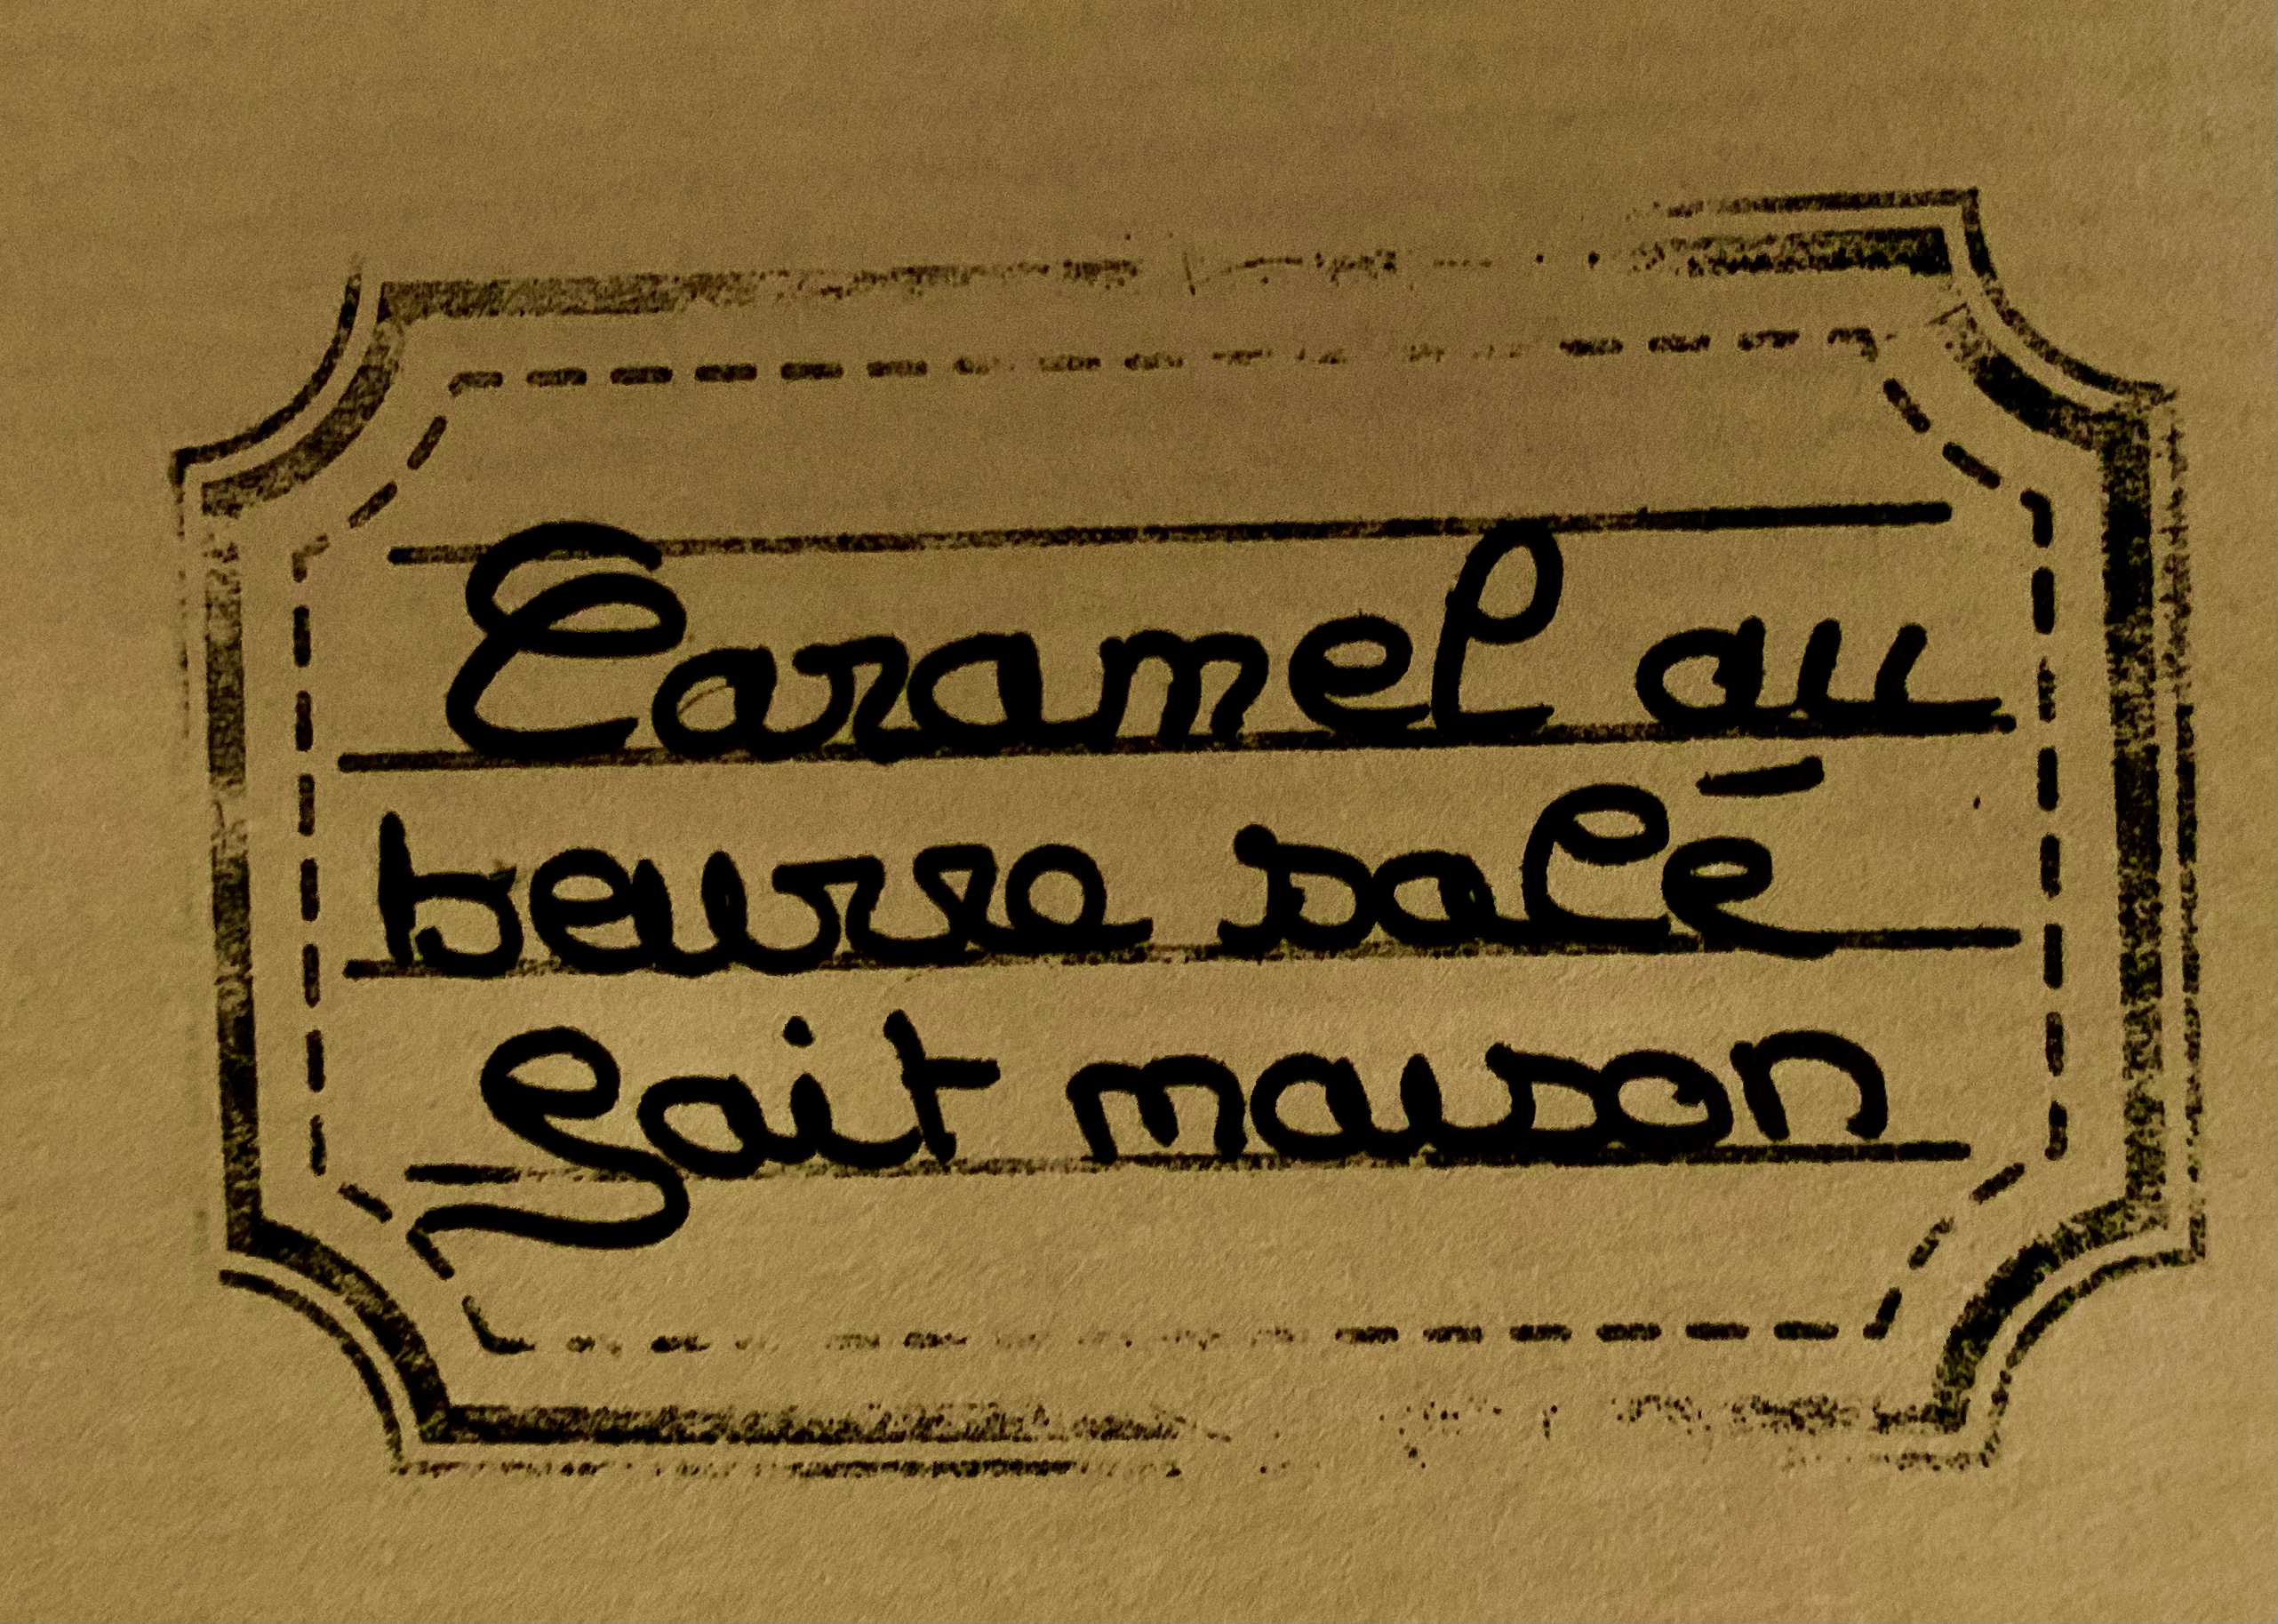 Caramel au
beurre salé
fait maison